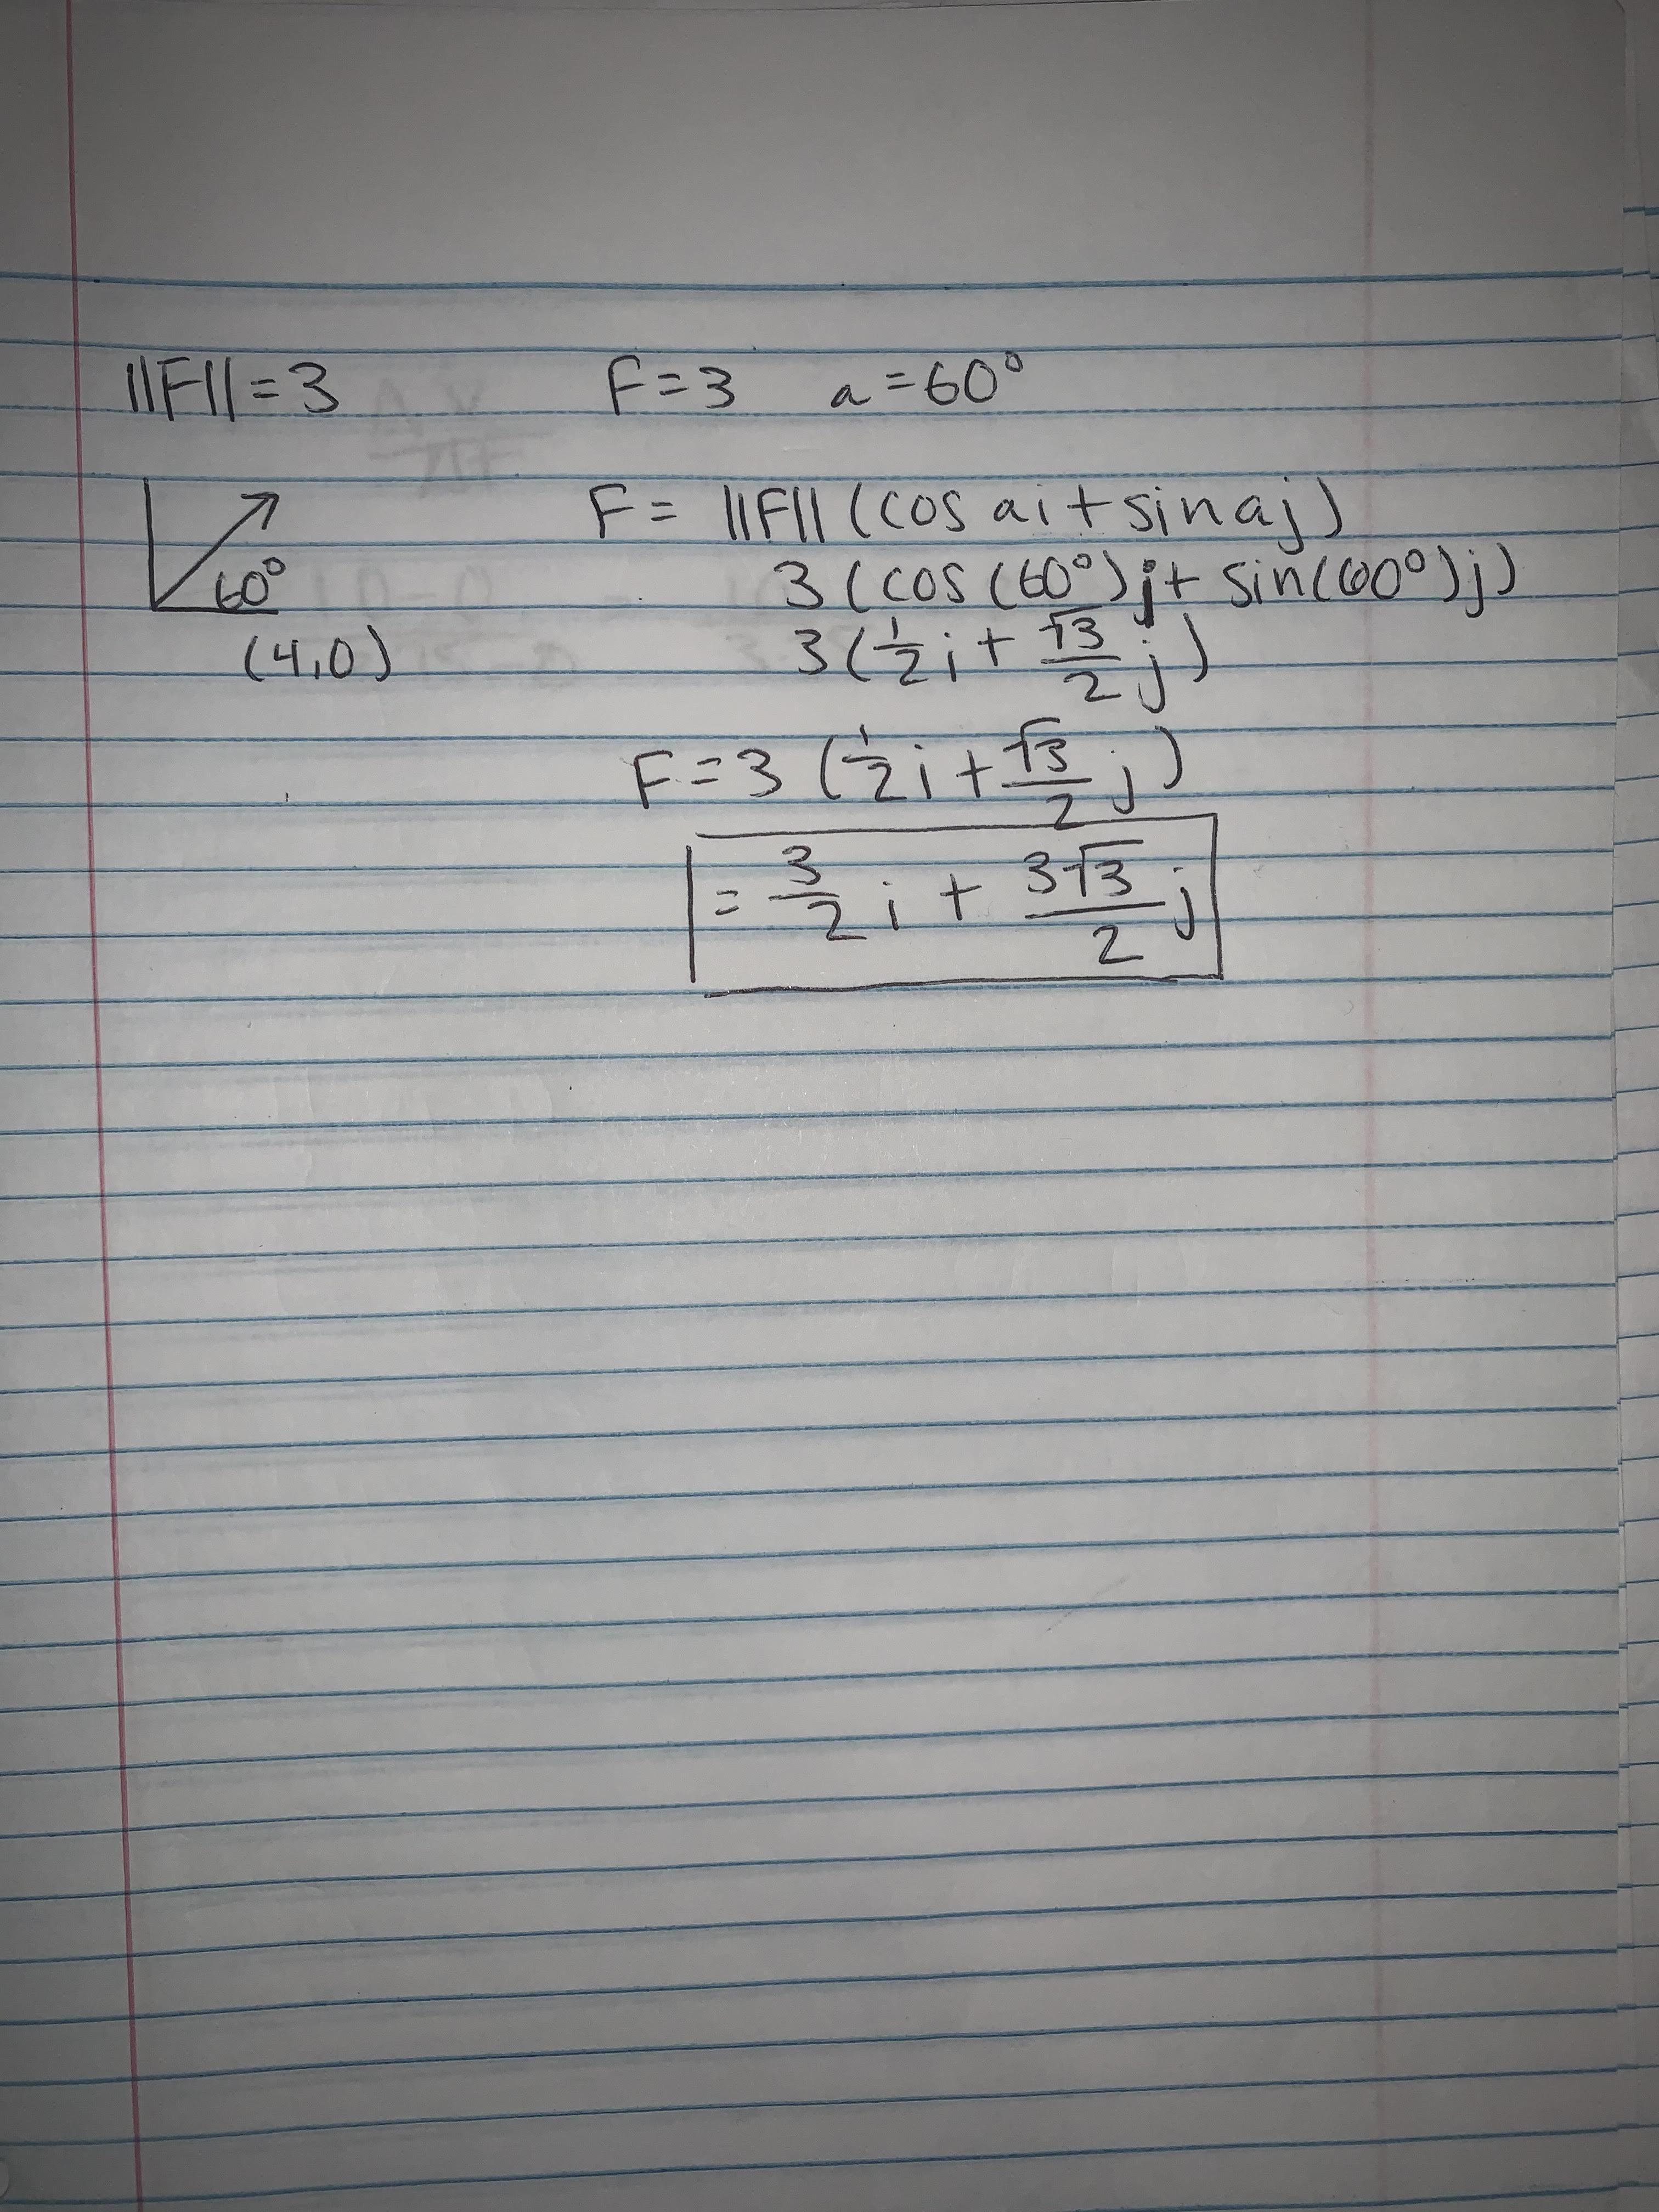 ||F||=3 F=3 a=60°
60°
(4,0)
F= ||F|| (cos ai+sinaj)
3 (cos (60°)j+ sin(60°)j)
3 (1/2 i + √3/2 j)
F=3 (1/2 i + √3/2 j)
= 3/2 i + 3√3/2 j